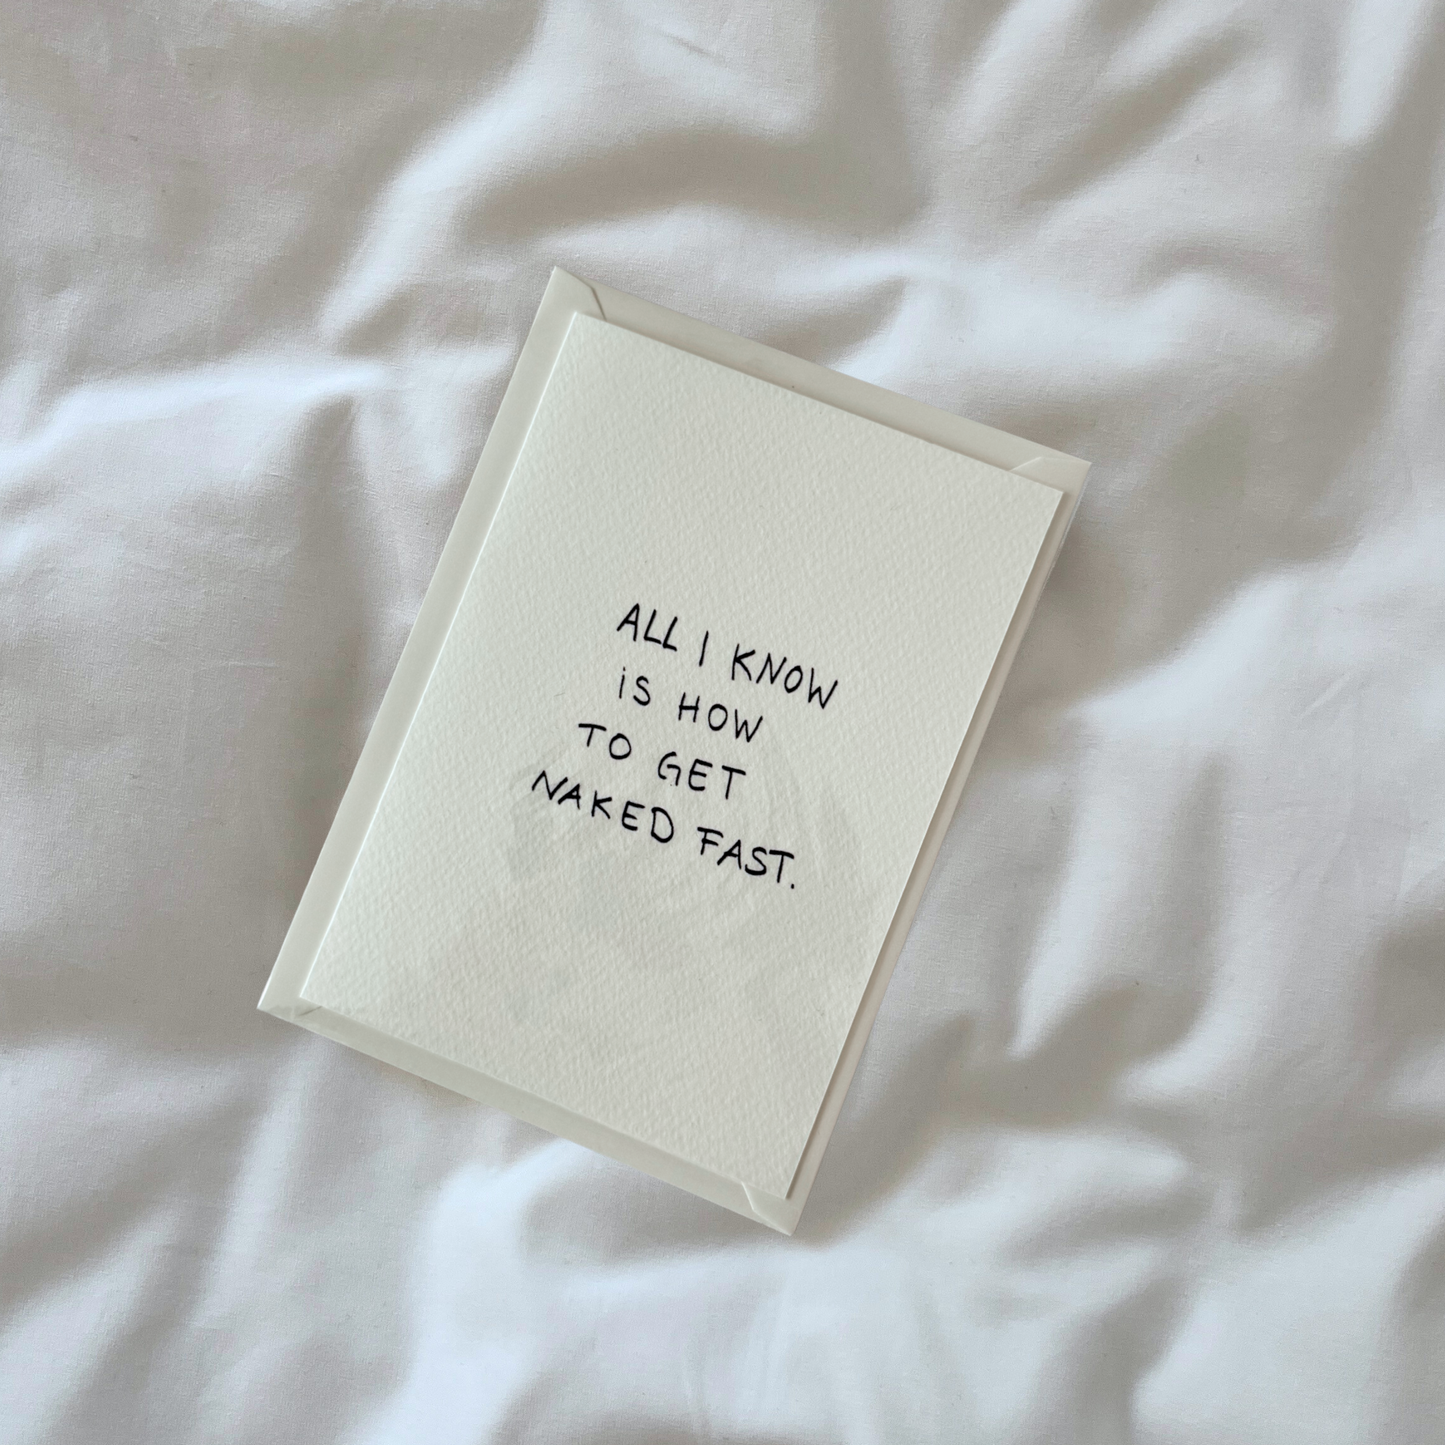 ALL I KNOW
iS HOW
TO GET
NAKED FAST.